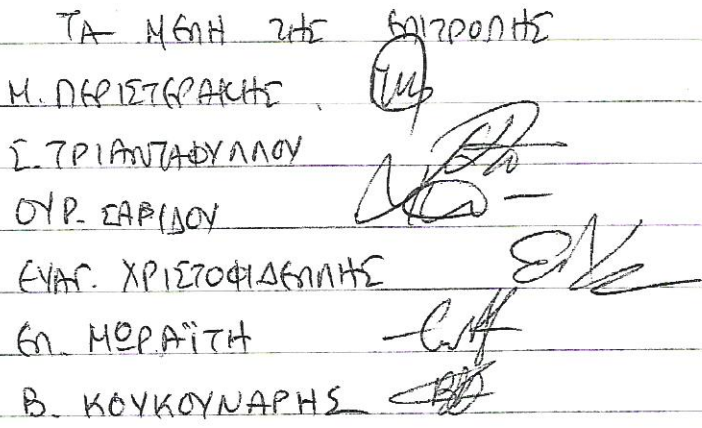 ΤΑ ΜΕΛΗ ΤΗΣ ΕΠΙΤΡΟΠΗΣ
Μ. ΠΕΡΙΣΤΕΡΑΚΗΣ
Σ. ΤΡΙΑΝΤΑΦΥΛΛΟΥ
ΟΥΡ. ΣΑΒΙΔΟΥ
ΕΥΑΓ. ΧΡΙΣΤΟΦΙΔΕΛΛΗΣ
ΕΛ. ΜΩΡΑΪΤΗ
Β. ΚΟΥΚΟΥΝΑΡΗΣ